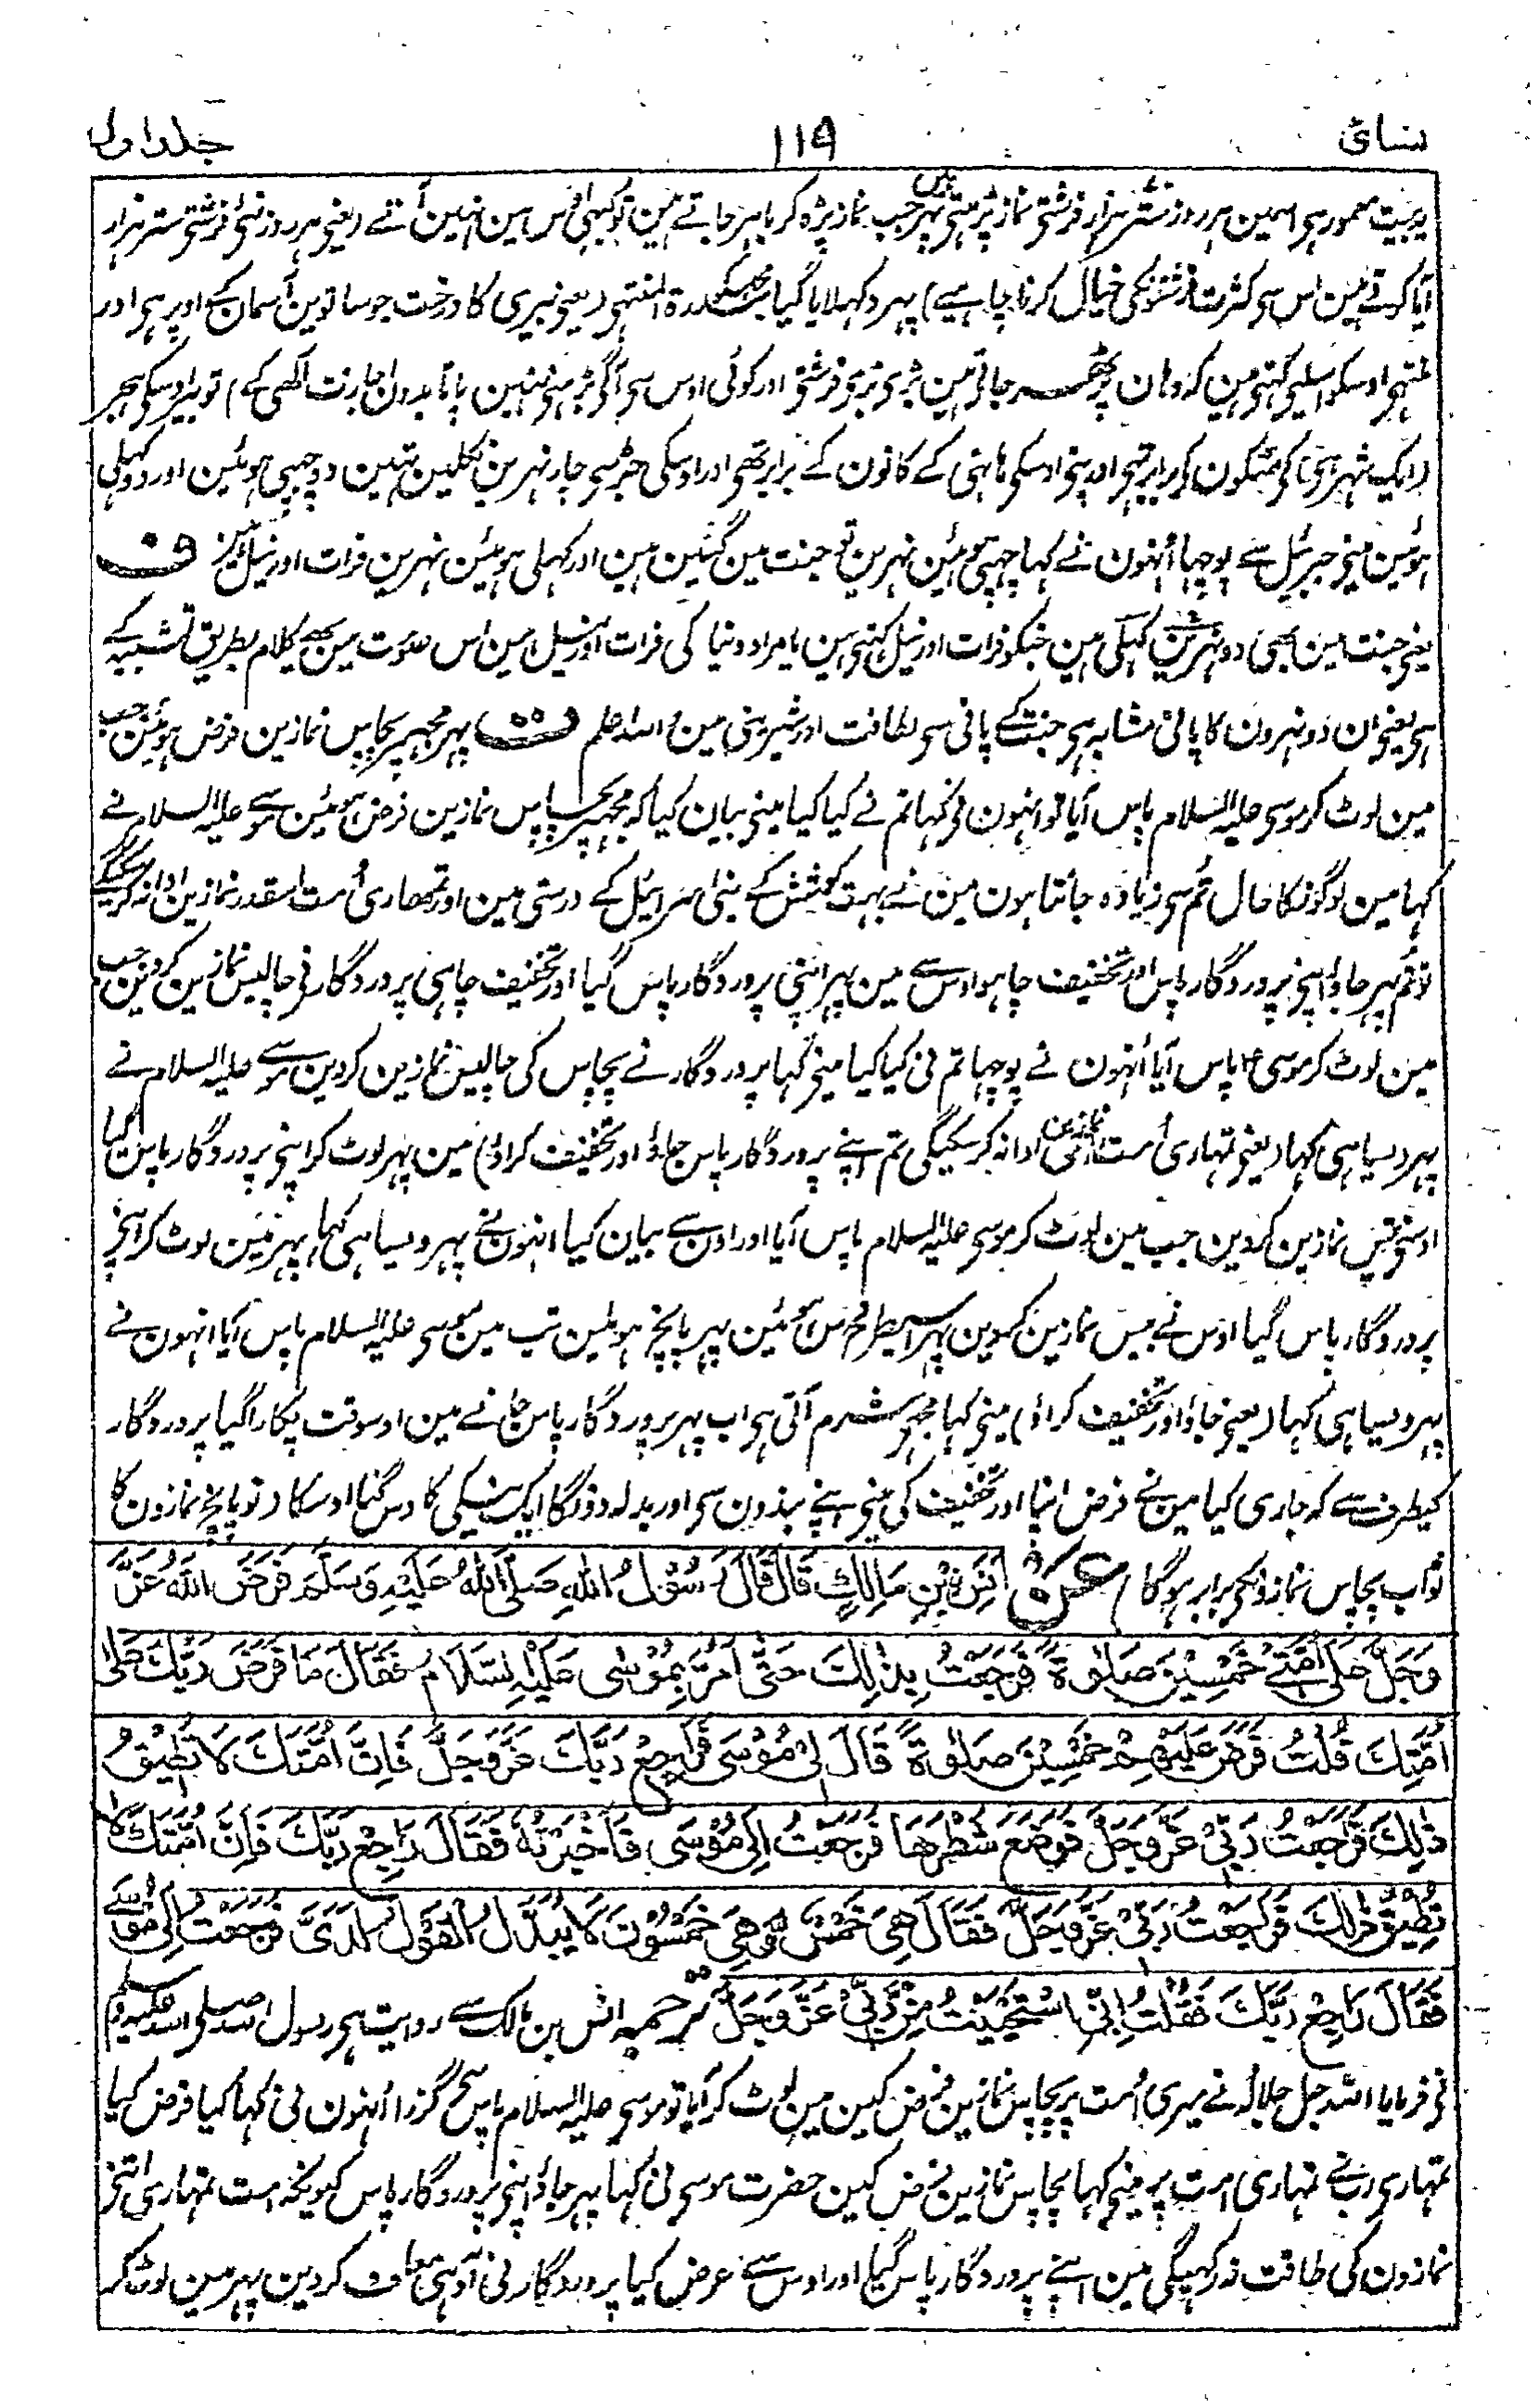 نسائی ۱۱۹ جلد اول
یہ بیت معمور ہی اسمین ہر روز ستر ہزار فرشتی نماز پڑہتی ہین پہر جب نماز پڑہ کر باہر جاتے ہین تو کبہی اوس مین نہین آتے (یعنی ہر روز نئی فرشتی ستر ہزار
آیا کرتے ہین اس سی کثرت فرشتونکی خیال کرنا چاہیے) پہر دکہلایا گیا مجہکو سدرۃ المنتہی (یعنی بیری کا درخت جو ساتوین آسمان کے اوپر ہی اور
منتہی اوسکو اسلیی کہتی ہین کہ وہان پر ٹہہر جاتی ہین بڑی بڑی فرشتی اور کوئی اوس سی آگی بڑہنی نہین پاتا بدون اجازت الہی کے) تو بیر اوسکی ہجر
(ایک شہر ہی) کی مٹکون کی برابر تہی اور پتی اوسکی ہاتہی کے کانون کے برابر تھی اور اوسکی جڑ سی چار نہرین نکلین تہین دو چہپی ہوئین اور دو کہلی
ہوئین مینی جبرئیل سے پوچہا اُنہون نے کہا چہپی ہوئین نہرین تو جنت مین گئین ہین اور کہلی ہوئین نہرین فرات اور نیل ہین ف
یعنی جنت مین بھی دو نہرین ہین جنکو فرات اور نیل کہتی ہین یا مراد دنیا کی فرات اور نیل ہین اس صورت مین یہ کلام بطریق تشبیہ کے
ہی یعنی ان دو نہرون کا پانی مشابہ ہی جنت کے پانی سی لطافت اور شیرینی مین واللہ اعلم ف پہر مجہپر پچاس نمازین فرض ہوئین جب
مین لوٹ کر موسی علیہ السلام پاس آیا تو انہون نی کہا تم نے کیا کیا مینی بیان کیا کہ مجہپر پچاس نمازین فرض ہوئین موسے علیہ السلام نے
کہا مین لوگونکا حال تم سی زیادہ جانتا ہون مین نے بہت کوشش کے بنی اسرائیل کے درستی مین اور تمھاری اُمت اسقدر نمازین ادا نہ کر سکیگی
تو تم پہر جاؤ اپنی پروردگار پاس اور تخفیف چاہو اوس سے مین پہر اپنی پروردگار پاس گیا اور تخفیف چاہی پروردگار نی چالیس نمازین کر دین جب
مین لوٹ کر موسی ؑ پاس آیا اُنہون نے پوچہا تم نی کیا کیا مینی کہا پروردگار نے پچاس کی چالیس نمازین کر دین موسے علیہ السلام نے
پہر ویسا ہی کہا (یعنی تمہاری اُمت اتنی نمازین ادا نہ کر سکیگی تم اپنے پروردگار پاس جاؤ اور تخفیف کراؤ) مین پہر لوٹ کر اپنی پروردگار پاس گیا
اوسنی تیس نمازین کر دین جب مین لوٹ کر موسی علیہ السلام پاس آیا اور اون سے بیان کیا انہون نے پہر ویسا ہی کہا پہر مین لوٹ کر اپنی
پروردگار پاس گیا اوس نے بیس نمازین کر دین پہر اسیطرح دس ہوئین پہر پانچ ہوئین تب مین موسی علیہ السلام پاس آیا انہون نے
پہر ویسا ہی کہا (یعنی جاؤ اور تخفیف کراؤ) مینی کہا مجہی شرم آتی ہی اب پہر پروردگار پاس جانے مین اوسوقت پکارا گیا پروردگار
کیطرف سے کہ جاری کیا مین نے فرض اپنا اور تخفیف کی مینی اپنے بندون سی اور بدلہ دونگا ایک نیکی کا دس گنا اوسکا (تو پانچ نمازون کا
ثواب پچاس نمازونکی برابر ہوگا) عَنْ اَنَسِ بْنِ مَالِكٍ قَالَ قَالَ رَسُوْلُ اللهِ صَلَّى اللهُ عَلَيْهِ وَسَلَّمَ فَرَضَ اللهُ عَزَّ
وَجَلَّ عَلٰى اُمَّتِيْ خَمْسِيْنَ صَلٰوةً فَرَجَعْتُ بِذٰلِكَ حَتّٰى اَمُرَّ بِمُوْسٰى عَلَيْهِ السَّلَامُ فَقَالَ مَا فَرَضَ رَبُّكَ عَلٰى
اُمَّتِكَ قُلْتُ فَرَضَ عَلَيْهِمْ خَمْسِيْنَ صَلٰوةً قَالَ لِيْ مُوْسٰى فَرَاجِعْ رَبَّكَ عَزَّ وَجَلَّ فَاِنَّ اُمَّتَكَ لَا تُطِيْقُ
ذٰلِكَ فَرَاجَعْتُ رَبِّيْ عَزَّ وَجَلَّ فَوَضَعَ شَطْرَهَا فَرَجَعْتُ اِلٰى مُوْسٰى فَاَخْبَرْتُهٗ فَقَالَ رَاجِعْ رَبَّكَ فَاِنَّ اُمَّتَكَ لَا
تُطِيْقُ ذٰلِكَ فَرَاجَعْتُ رَبِّيْ عَزَّ وَجَلَّ فَقَالَ هِيَ خَمْسٌ وَهِيَ خَمْسُوْنَ لَا يُبَدَّلُ الْقَوْلُ لَدَيَّ فَرَجَعْتُ اِلٰى مُوْسٰى
فَقَالَ رَاجِعْ رَبَّكَ فَقُلْتُ اِنِّي اسْتَحْيَيْتُ مِنْ رَّبِّيْ عَزَّ وَجَلَّ ترجمہ انس بن مالک سے روایت ہی رسول اللہ صلی اللہ علیہ وسلم
نی فرمایا اللہ جل جلالہ نے میری اُمت پر پچاس نمازین فرض کین مین لوٹ کر آیا تو موسی علیہ السلام پاس سی گزرا اُنہون نی کہا کیا فرض کیا
تمہاری رب نے تمہاری امت پر مینی کہا پچاس نمازین فرض کین حضرت موسی نی کہا پہر جاؤ اپنی پروردگار پاس کیونکہ امت تمہاری اتنی
نمازون کی طاقت نہ رکہیگی مین اپنے پروردگار پاس گیا اور اوس سے عرض کیا پروردگار نی آدہی معاف کر دین پہر مین لوٹ کر